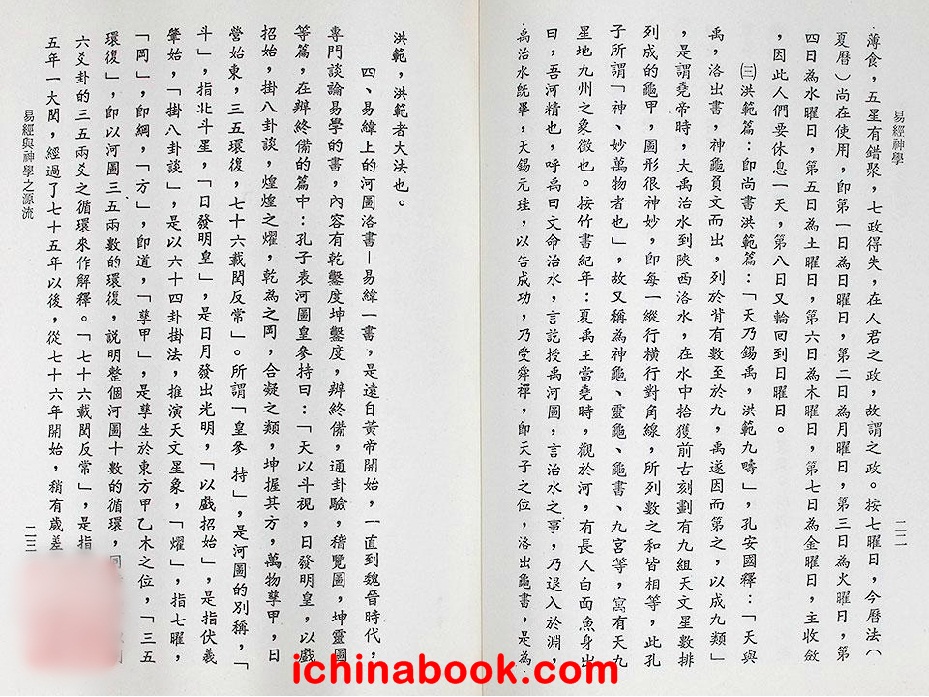 易經與神學
二二
薄食，五星有錯聚，七政得失，在人君之政，故謂之政。按七曜日，今曆法（
夏曆）尚在使用，即第一日為日曜日，第二日為月曜日，第三日為火曜日，第
四日為水曜日，第五日為土曜日，第六日為木曜日，第七日為金曜日，主收斂
，因此人們要休息一天，第八日又輪回到日曜日。
㈢洪範篇：即尚書洪範篇：「天乃錫禹，洪範九疇」，孔安國釋：「天與
禹，洛出書，神龜負文而出，列於背有數至於九，禹遂因而第之，以成九類」
，是謂堯帝時，大禹治水到陝西洛水，在水中拾獲前古刻劃有九組天文星數排
列成的龜甲，圖形很神妙，即每一縱行橫行對角線，所列數之和皆相等，此孔
子所謂「神、妙萬物者也」，故又稱為神龜、靈龜、龜書、九宮等，寓有天九
星地九州之象徵也。按竹書紀年：夏禹王當堯時，觀於河，有長人白面魚身出
曰，吾河精也，呼禹曰文命治水，言訖授禹河圖，言治水之事，乃退入於淵，
禹治水既畢，大錫元珪，以告成功，乃受舜禪，即天子之位，洛出龜書，是為
洪範，洪範者大法也。
四、易緯上的河圖洛書—易緯一書，是遠自黃帝開始，一直到魏晉時代，
專門談論易學的書，內容有乾鑿度坤鑿度，辨終備，通卦驗，稽覽圖，坤靈圖
等篇，在辨終備的篇中：孔子表河圖皇參持曰：「天以斗視，日發明皇，以戲
招始，掛八卦談，煌煌之燿，乾為之岡，合凝之類，坤握其方，萬物孳甲，日
營始東，三五環復，七十六載閏反常」。所謂「皇參持」，是河圖的別稱，「
斗」，指北斗星，「日發明皇」，是日月發出光明，「以戲招始」，是指伏羲
肇始，「掛八卦談」，是以六十四卦掛法，推演天文星象，「燿」，指七曜，
「岡」，即綱，「方」，即道，「孳甲」，是孳生於東方甲乙木之位，「三五
環復」，即以河圖三五兩數的環復，說明整個河圖十數的循環，
六爻卦的三五兩爻之循環來作解釋。「七十六載閏反常」，是指
五年一大閏，經過了七十五年以後，從七十六年開始，稍有歲差
易經與神學之源流
二三
ichinabook.com